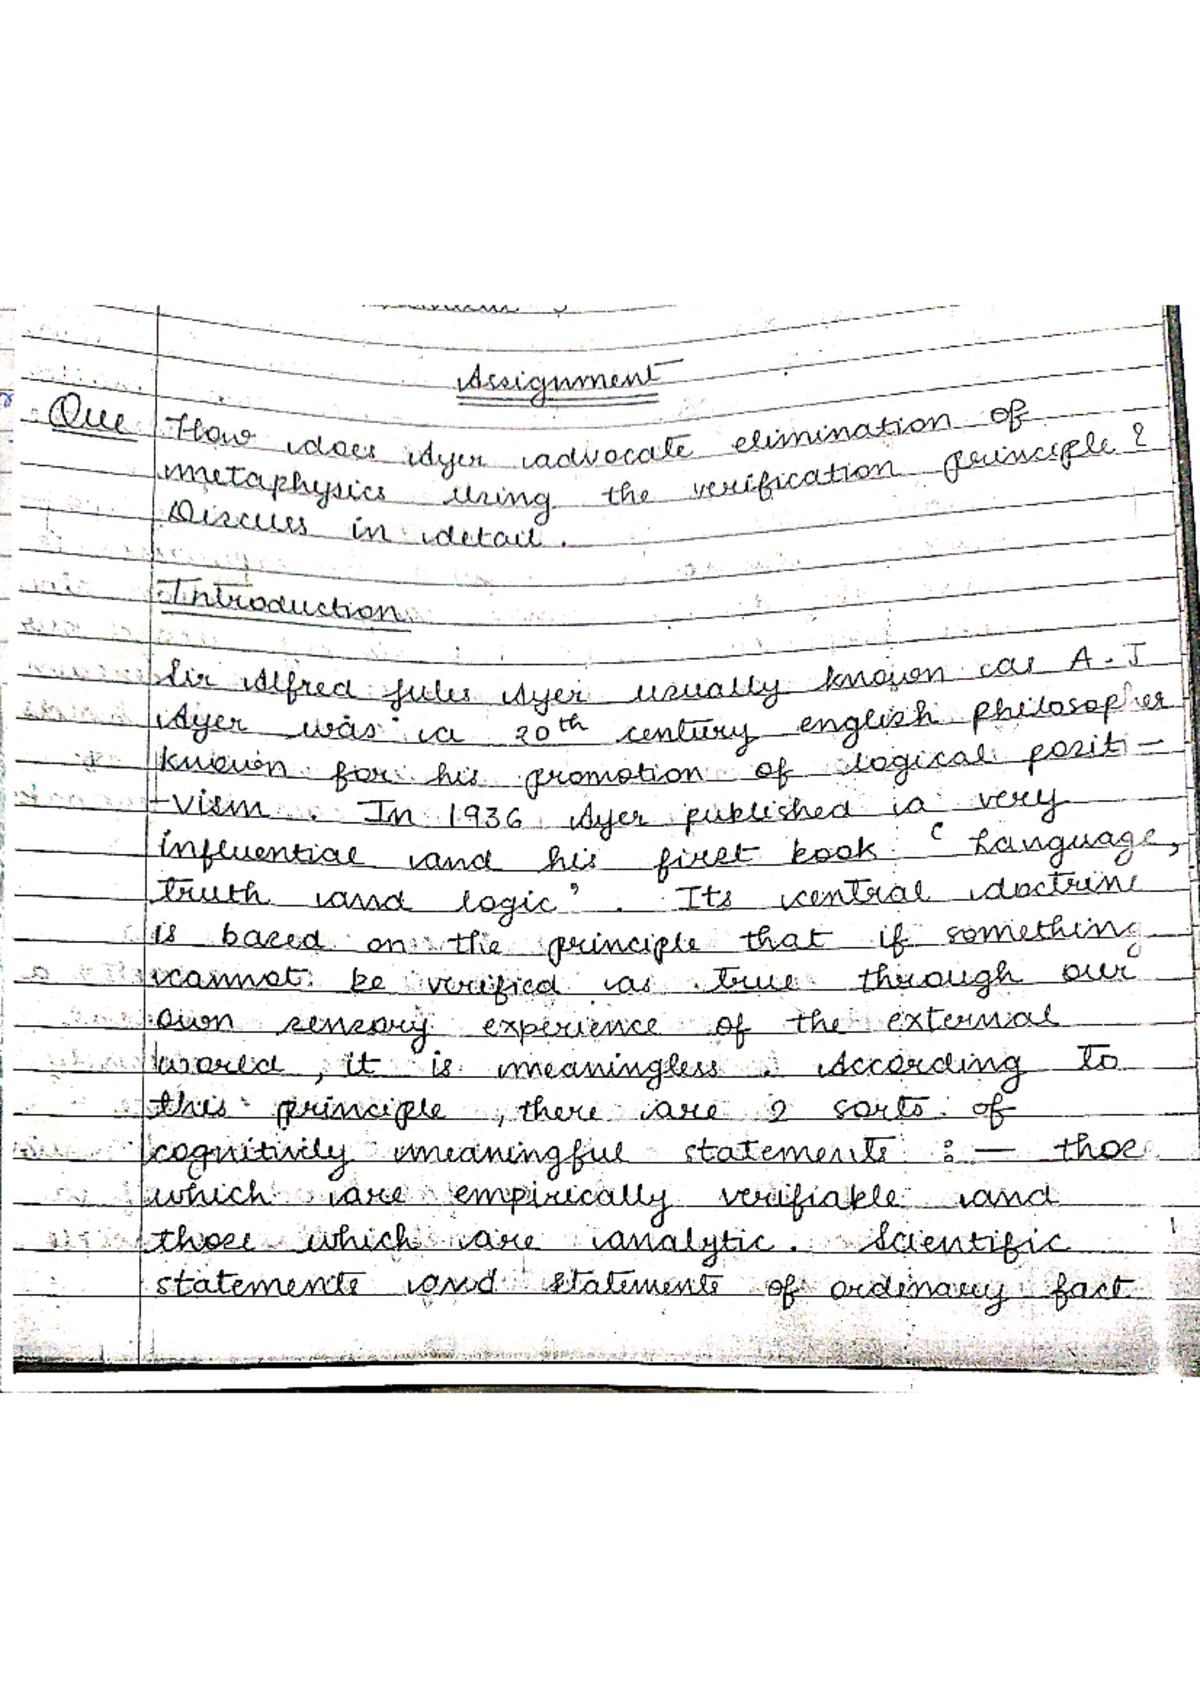 Assignment
Que How does Ayer advocate elimination of
metaphysics using the verification principle ?
Discuss in detail .
Introduction
Sir Alfred Jules Ayer usually known as A . J
Ayer was a 20th century english philosopher
known for his promotion of logical positi -
-vism . In 1936 Ayer published a very
influential and his first book ' Language,
truth and logic' . Its central doctrine
is based on the principle that if something
cannot be verified as true through our
own sensory experience of the external
world , it is meaningless . According to
this principle , there are 2 sorts of
cognitively meaningful statements : — those
which are empirically verifiable and
those which are analytic . Scientific
statements and statements of ordinary fact